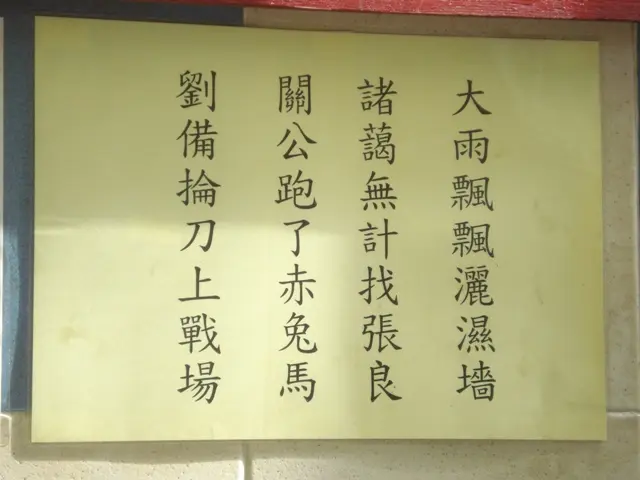 大雨飄飄灑濕墻
諸藹無計找張良
關公跑了赤兔馬
劉備掄刀上戰場